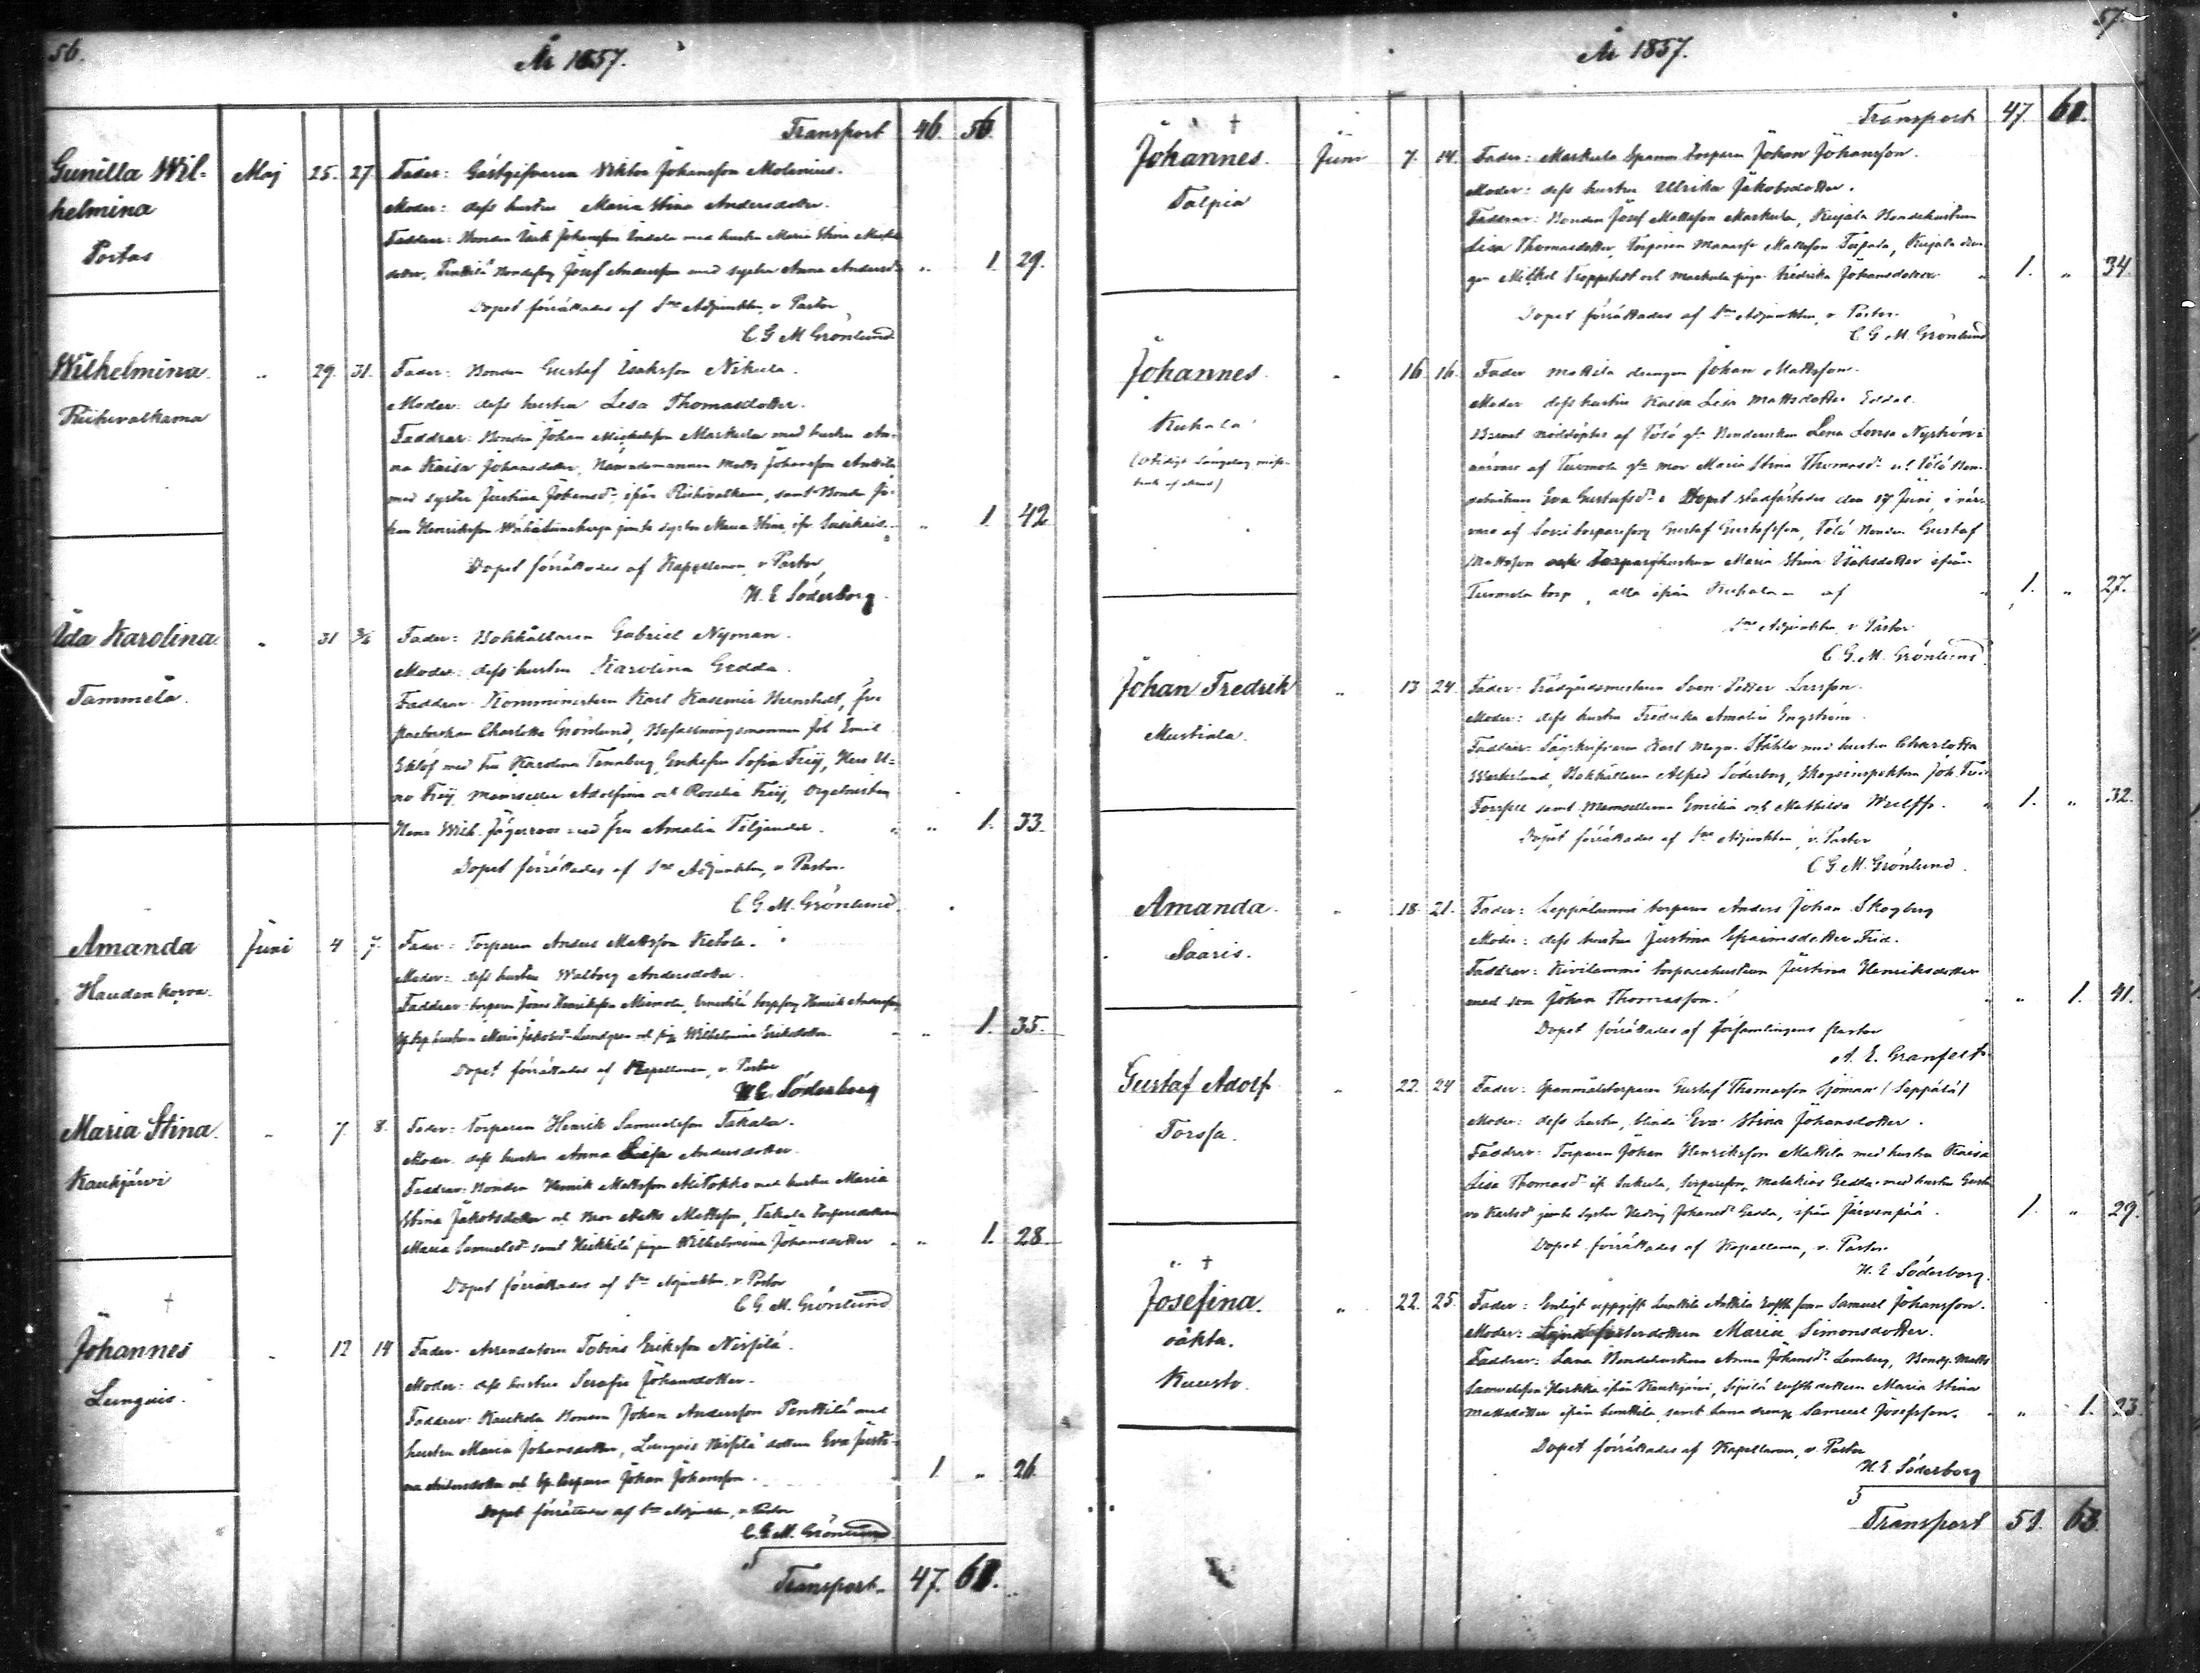 56.
År 1857.
Transport 46. 56.
Gunilla Wilhelmina
Portas
Maj 25. 27
Fader: Gästgifvaren Viktor Johansson Molenius.
Moder: dess hustru Maria Stina Andersdotter.
Faddrar: Bonden Isak Johansson Indala med hustru Maria Stina
dotter, Penttilä Bondeson Josef Andersson med syster Anna Andersdr „ 1. 29.
Dopet förrättades af Sne Adjunkten, v. Pastor
C G M Grönlund
Wilhelmina.
Riihivalkama
„ 29. 31.
Fader: Bonden Gustaf Isaksson Nikula.
Moder: dess hustru Lisa Thomasdotter.
Faddrar: Bonden Johan Michelsson Markula med hustru An-
na Kaisa Johansdotter, Nämndemannen Matts Johansson Anttila
med syster Justina Johansdr, ifrån Riihivalkama, samt Bonden Jo-
han Henriksson jemte syster Maria Stina, ifr. „ 1. 42
Dopet förrättades af Kapellanen, v. Pastor,
N. E Söderborg.
Ida Karolina.
Tammela.
„ 31 3/6
Fader: Bokhållaren Gabriel Nyman.
Moder: dess hustru Karolina Gedda.
Faddrar: Komministern Karl Kasimir fru
Charlotta Grönlund, Befallningsmannen Joh. Emil
Eklöf med fru Karolina Tennberg, Enkefru Sofia Frij, Herr U-
no Frij, Mamseller Adolfina och Rosalia Frij, Orgelnisten
Hans Wilh. Jägerroos med fru Amalia Tiljander. „ „ 1. 33.
Dopet förrättades af Sne Adjunkten, v. Pastor.
C. G. M. Grönlund.
Amanda
Haudankorva.
Juni 4 7.
Fader: Torparen Anders Mattsson Ketola.
Moder: dess hustru Walborg Andersdotter.
Faddrar: torparen Jöns Henriksson torpson Henrik Andersson,
hustrun Maria Jakobsdr Lundgren och pig. Wilhelmina Eriksdotter „ „ 1. 35.
Dopet förrättades af Kapellanen, v. Pastor
N E. Söderborg
Maria Stina.
Kaukjärvi
„ 7. 8.
Fader: Torparen Henrik Samuelsson Takala.
Moder: dess hustru Anna Lisa Andersdotter.
Faddrar: Bonden Henrik Mattsson med hustru Maria
Stina Jakobsdotter och Bror Matts Mattsson, Takala torparedottern
Maria Samuelsdr samt Heikkilä pigan Wilhelmina Johansdotter „ „ 1. 28
Dopet förrättades af Sne Adjunkten, v. Pastor
C G. M. Grönlund
†
Johannes
Lunguis.
„ 12 14
Fader: Arrendatorn Tobias Eriksson Nispilä.
Moder: dess hustru Serafia Johansdotter.
Faddrar: Kaukola Bonden Johan Andersson Penttilä med
hustru Maria Johansdotter, Lunguis Nispilä dottern Eva Justi-
na Andersdotter och Sp. torparen Johan Johansson. 1. „ 26.
Dopet förrättades af Sne Adjunkten, v. Pastor
C. G. M. Grönlund
Transport. 47. 61.
57.
År 1857.
Transport 47. 61.
†
Johannes.
Talpia
Juni 7. 14.
Fader: Markula Spanm. torparen Johan Johansson.
Moder: dess hustru Ulrika Jakobsdotter.
Faddrar: Bonden Josef Mattsson Markula, Kujala Bondehustrun
Lisa Thomasdotter, Mattsson Kujala drän-
gen Mickel och Markula pigan Fredrika Johansdotter „ 1. „ 34.
Dopet förrättades af Sne Adjunkten, v. Pastor.
C G M. Grönlund
Johannes.
Kuhala
„ 16 16.
Fader Mattila drängen Johan Mattsson.
Moder dess hustru Kaisa Lisa Mattsdotter Eddal.
Barnet nöddöptes af Tölö gds Bondeenkan Lena Lovisa Nyström i
närvaro af Turvonda gds mor Maria Stina Thomasdr och Tölö Bon-
Eva Gustafsdr. Dopet stadfästades den 17 Juni, i när-
varo af torpareson Gustaf Gustafsson, Tölö Bonden Gustaf
Mattsson och torparehustrun Maria Stina Isaksdotter ifrån
torp, alla ifrån Kuhala – af „ 1. „ 27.
Sne Adjunkten, v. Pastor
C G. M. Grönlund
Johan Fredrik
Mustiala.
„ 13 24.
Fader: Trädgårdsmästaren Sven Petter Larsson.
Moder: dess hustru Fredrika Amalia Engström.
Faddrar: Karl Magn. Ståhle med hustru Charlotta
Bokhållaren Alfred Söderborg, Skogsinspektorn Joh.
Forssell samt Mamsellerna Emilia och Mathilda Wulff. „ 1. „ 32.
Dopet förrättades af Sne Adjunkten, v. Pastor
C G. M. Grönlund.
Amanda.
Saaris.
„ 18. 21.
Fader: Leppälammi torparen Anders Johan Skogberg
Moder: dess hustru Justina Efraimsdotter Frid.
Faddrar: Kivilammi torparehustrun Justina Henriksdotter
med son Johan Thomasson. „ „ 1. 41.
Dopet förrättades af församlingens pastor
A. E. Granfelt
Gustaf Adolf
Torssa.
„ 22. 24
Fader: Spanmålstorparen Gustaf Thomasson Sjöman (Seppälä)
Moder: dess hustru, blinda Eva Stina Johansdotter.
Faddrar: Torparen Johan Henriksson Mattila med hustru Kaisa
Lisa Thomasdr if. Sukula, torpareson Malakias Gedda med hustru Gusta-
va Karlsdr jemte syster Hedvig Johansdr Gedda, ifrån Järvenpää. 1. „ 29.
Dopet förrättades af Kapellanen, v. Pastor.
N. E Söderborg.
†
Josefina.
oäkta.
Kuusto.
„ 22. 25.
Fader: Enligt uppgift Anttila son Samuel Johansson.
Moder: Maria Simonsdotter.
Faddrar: Lana Bondehustrun Anna Johansdr Lemberg, Bondes. Matts
Samuelsson ifrån Kaukjärvi, dottern Maria Stina
Mattsdotter ifrån samt Lana dräng Samuel Josefsson. „ „ 1. 23.
Dopet förrättades af Kapellanen, v. Pastor
N. E. Söderborg
Transport 51. 63.